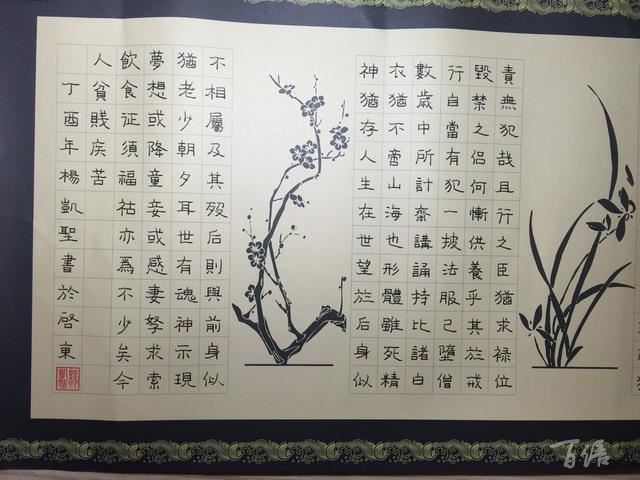 責無犯哉且行之臣猶求祿位
毀禁之侶何慚供養乎其於戒
行自當有犯一披法服已墮僧
數歲中所計齋講誦持比諸白
衣猶不啻山海也形體雖死精
神猶存人生在世望於后身似
不相屬及其歿后則與前身似
猶老少朝夕耳世有魂神示現
夢想或降童妾或感妻孥求索
飲食征須福祜亦爲不少矣今
人貧賤疾苦
丁酉年楊凱聖書於啓東